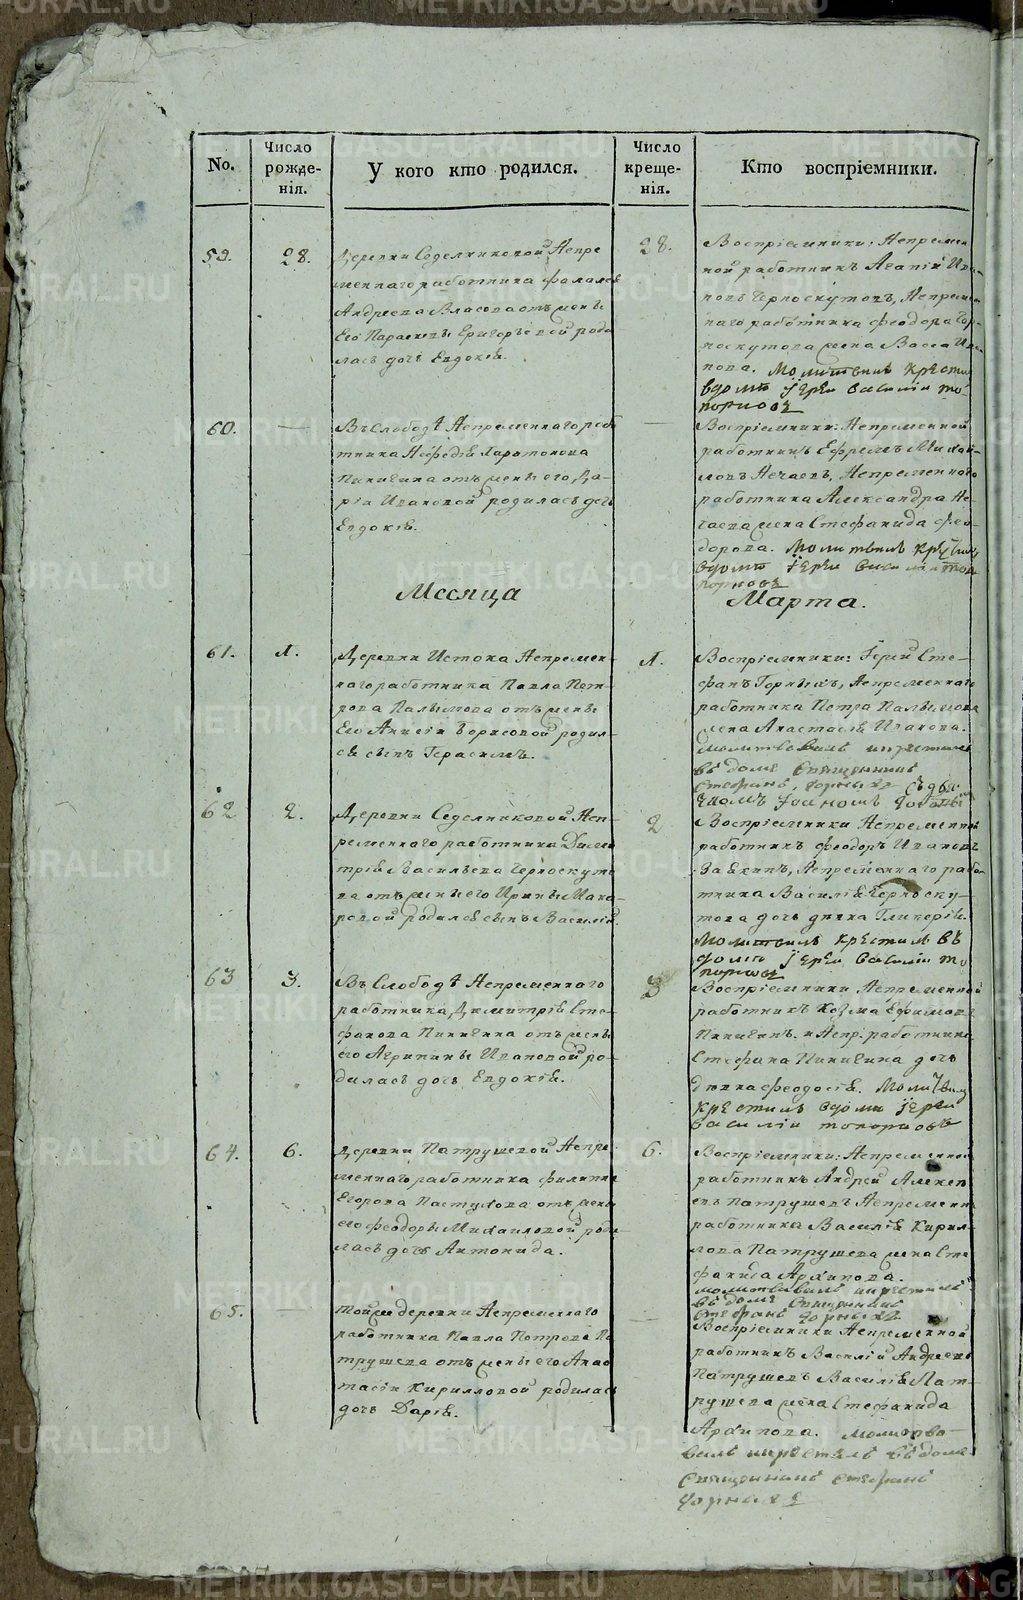 No.
Число рожде-нія.
У кого кто родился.
Число креще-нія.
Кто воспріемники.
59.
28.
Деревни Седелниковой Непре
меннаго работника Фалалея
Андреева Власова отъ жены
Его Параскевы Григорьевой роди
лась дочь Евдокія.
28.
Воспріемники: Непремен
ной работникъ Агапій Ива-
новъ Черноскутовъ, Непремен
наго работника Феодора Чор-
носкутова жена Васса Ива-
нова. Молитвилъ крести
вдому іерей василіи то
порковъ
60.
—
Въ Слободѣ Непременнаго рабо
тника Нефедія Харитонова
Пинигина отъ жены его, Да-
ріи Ивановой родилась дочь
Евдокія.
—
Воспріемники: Непременной
работникъ Ефремъ Михай-
ловъ Нечаевъ, Непременного
работника Александра Не-
чаева жена Стефанида Фео-
дорова. Молитвилъ крестил
вдому іерей василіи топ
порковъ
Месяца
Марта.
61.
1.
Деревни Истока Непремен-
наго работника Павла Пет-
рова Палымова отъ жены
Его Анисіи Борисовой родил-
ся сынъ Герасимъ.
1.
Воспріемники: Іерей Сте-
фанъ Горныхъ, Непременнаго
работника Петра Палымова
жена Анастасія Иванова.
молитвовалъ икрестилъ
въ доме Священникъ
Стефанъ
62
2.
Деревни Седелниковой Неп-
ременнаго работника Дими
трія Васильева Черноскуто
ва отъ жены его Ирины Мака-
ровой родился сынъ Василій.
2
Воспріемники Непременной
работникъ Феодоръ Ивановъ
Заякинъ, Непременнаго рабо
тника Василія Черноску-
това дочь девка Гликерія.
Молитвилъ крестилъ въ
дому іерей Василіи то
порковъ
63
3.
Въ Слободѣ Непременнаго
работника Димитрія Сте-
фанова Пинигина отъ жены
его Агрипины Ивановой ро-
дилась дочь Евдокія.
3
Воспріемники Непременной
работникъ Козма Ефимовъ
Пинигинъ. и Непр. работника
Стефана Пинигина дочь
девка Феодосія. Молитвил
крестилъ вдому іерей
василіи топорковъ
64.
6.
Деревни Патрушевой Непре
меннаго работника Филиппа
Егорова Пастухова отъ жены
его Феодоры Михаиловой роди-
лась дочь Антонида.
6.
Воспріемники: Непременной
работникъ Андрей Алексе
евъ Патрушевъ Непременна
работника Василія Кирил-
лова Патрушева жена Сте
фанида Архипова.
молитвовалъ икрестилъ
въ доме Священникъ
Стефанъ
65.
—
Тойже деревни Непременнаго
работника Павла Петрова Па
трушева отъ жены его Анас
тасіи Кирилловой родилась
дочь Дарія.
—
Воспріемники Непременной
работникъ Василій Андреевъ
Патрушевъ Василія Пат-
рушева жена Стефанида
Архипова. молитво-
валъ икрестилъ въ доме
Священникъ Стефанъ